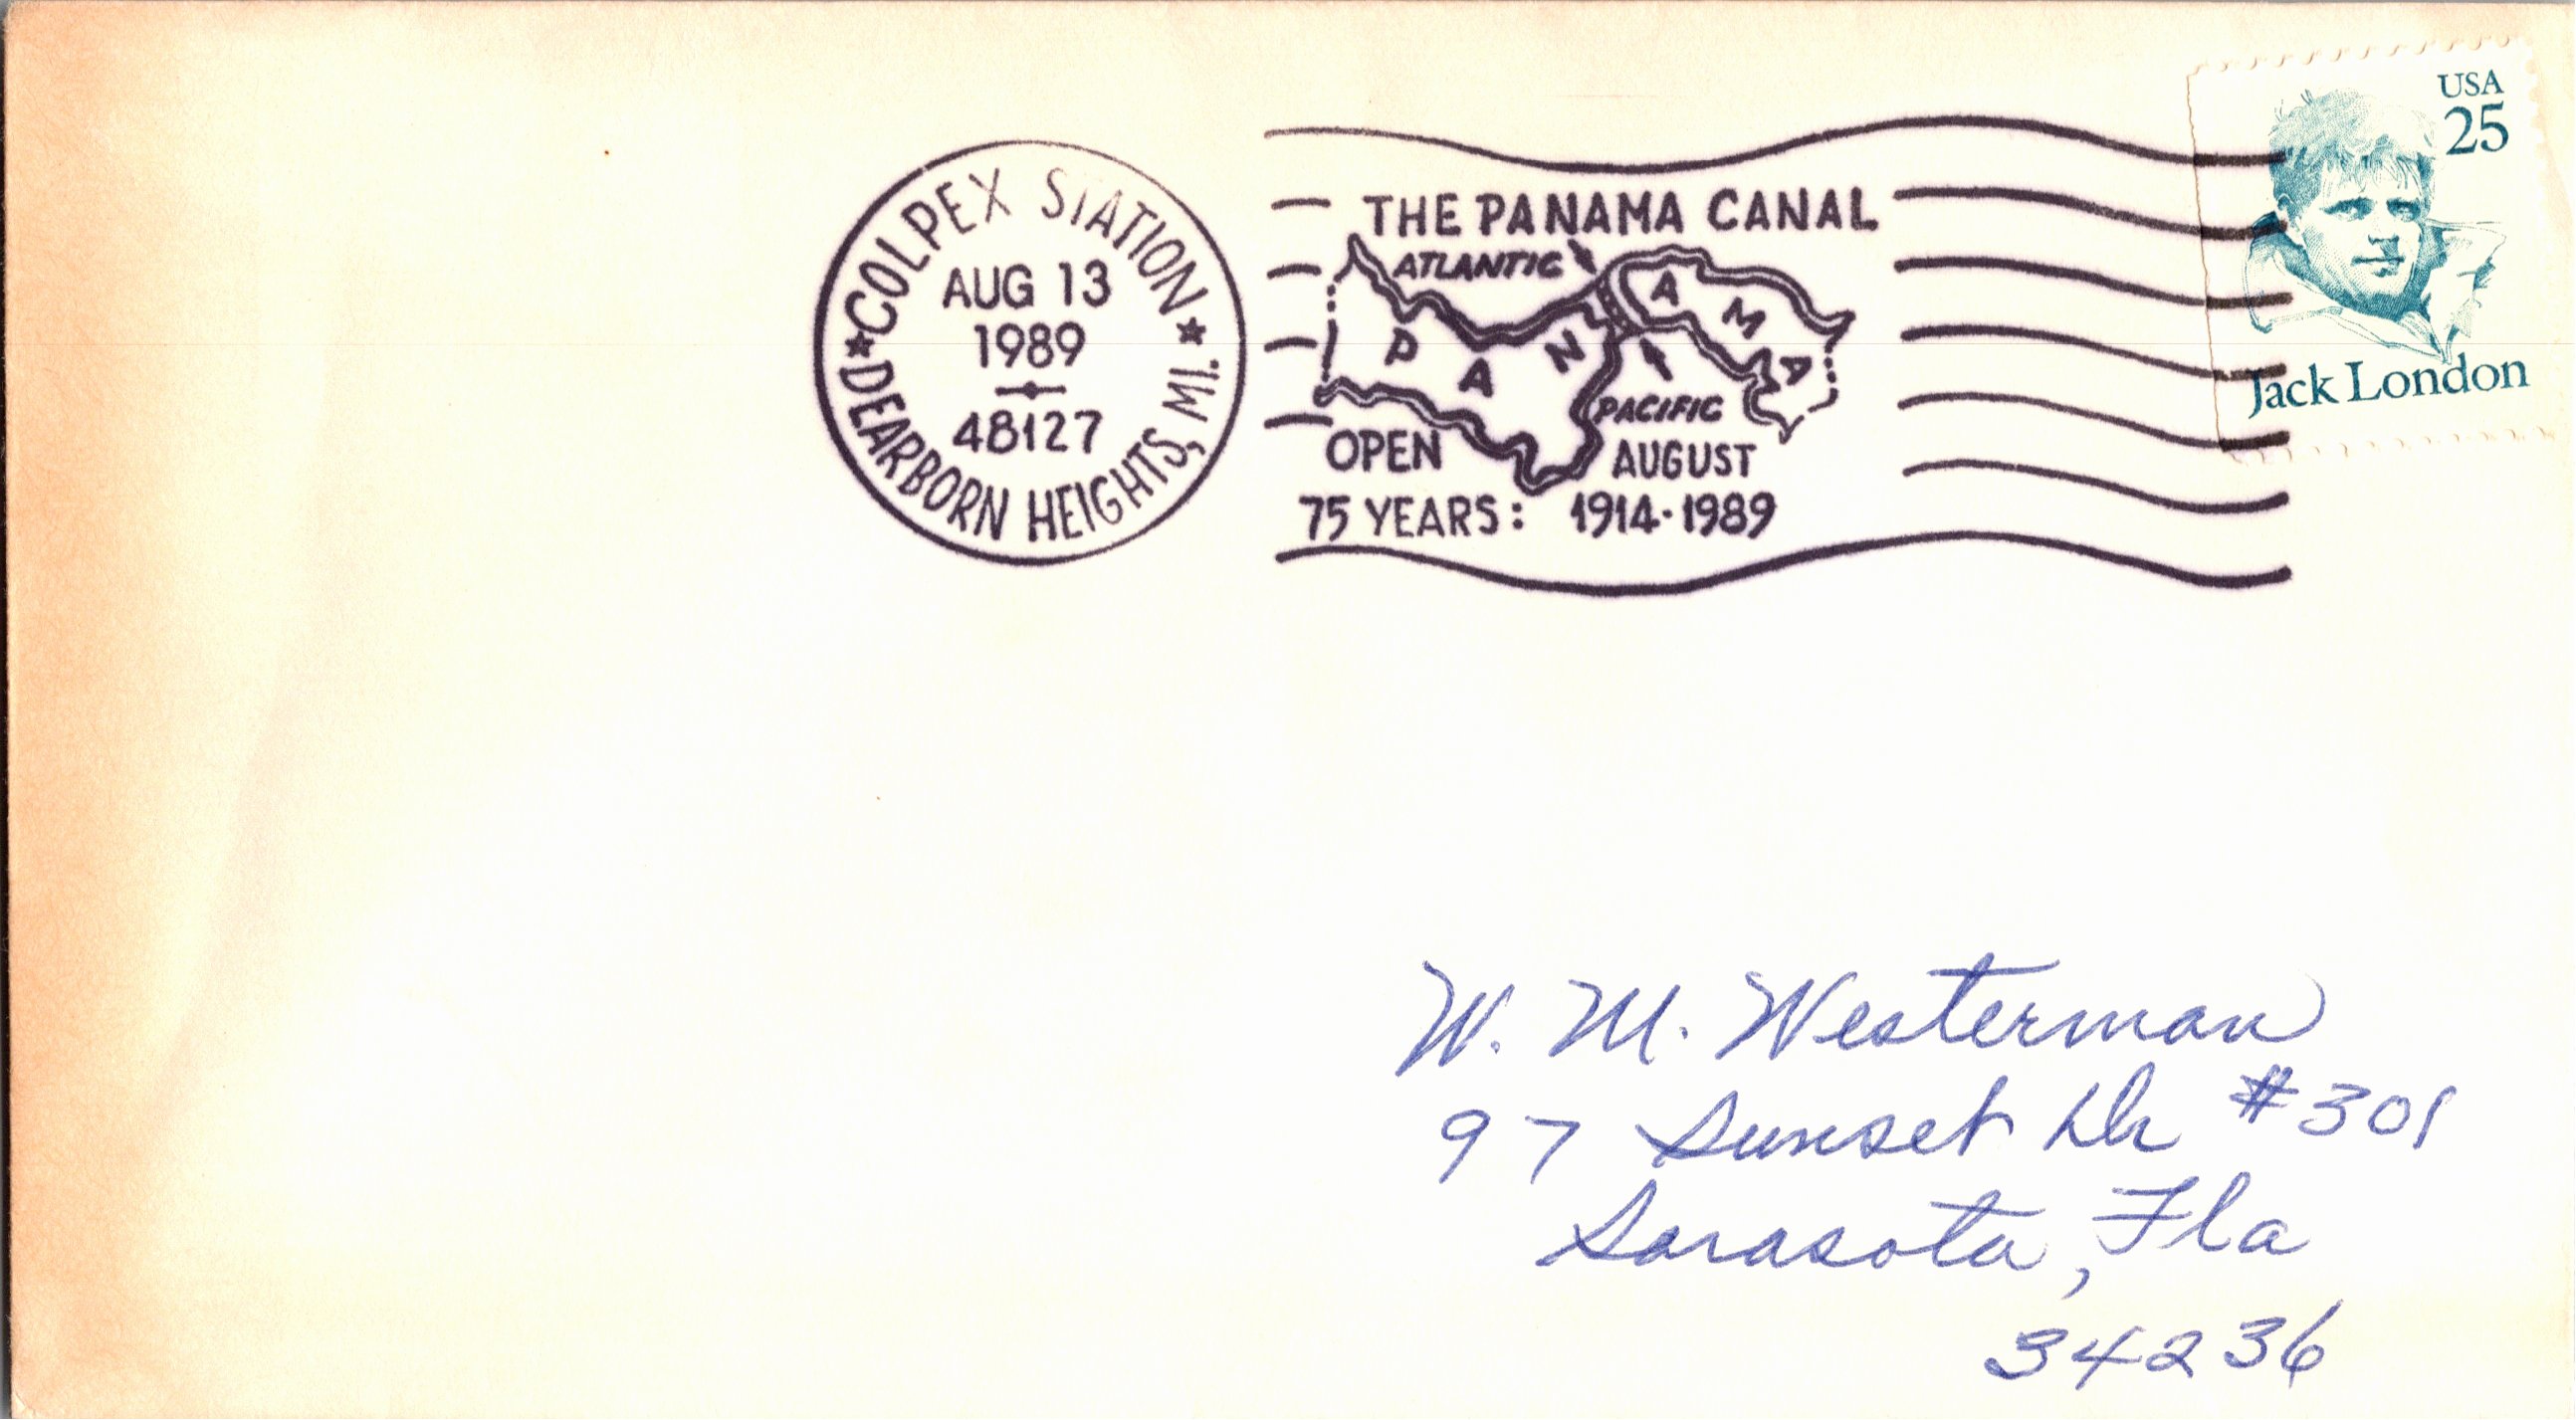 COLPEX STATION
AUG 13
1989
48127
★ DEARBORN HEIGHTS, MI. ★
THE PANAMA CANAL
ATLANTIC
PANAMA
PACIFIC
OPEN AUGUST
75 YEARS: 1914-1989
USA
25
Jack London
W. M. Westerman
97 Sunset Dr #301
Sarasota, Fla
34236